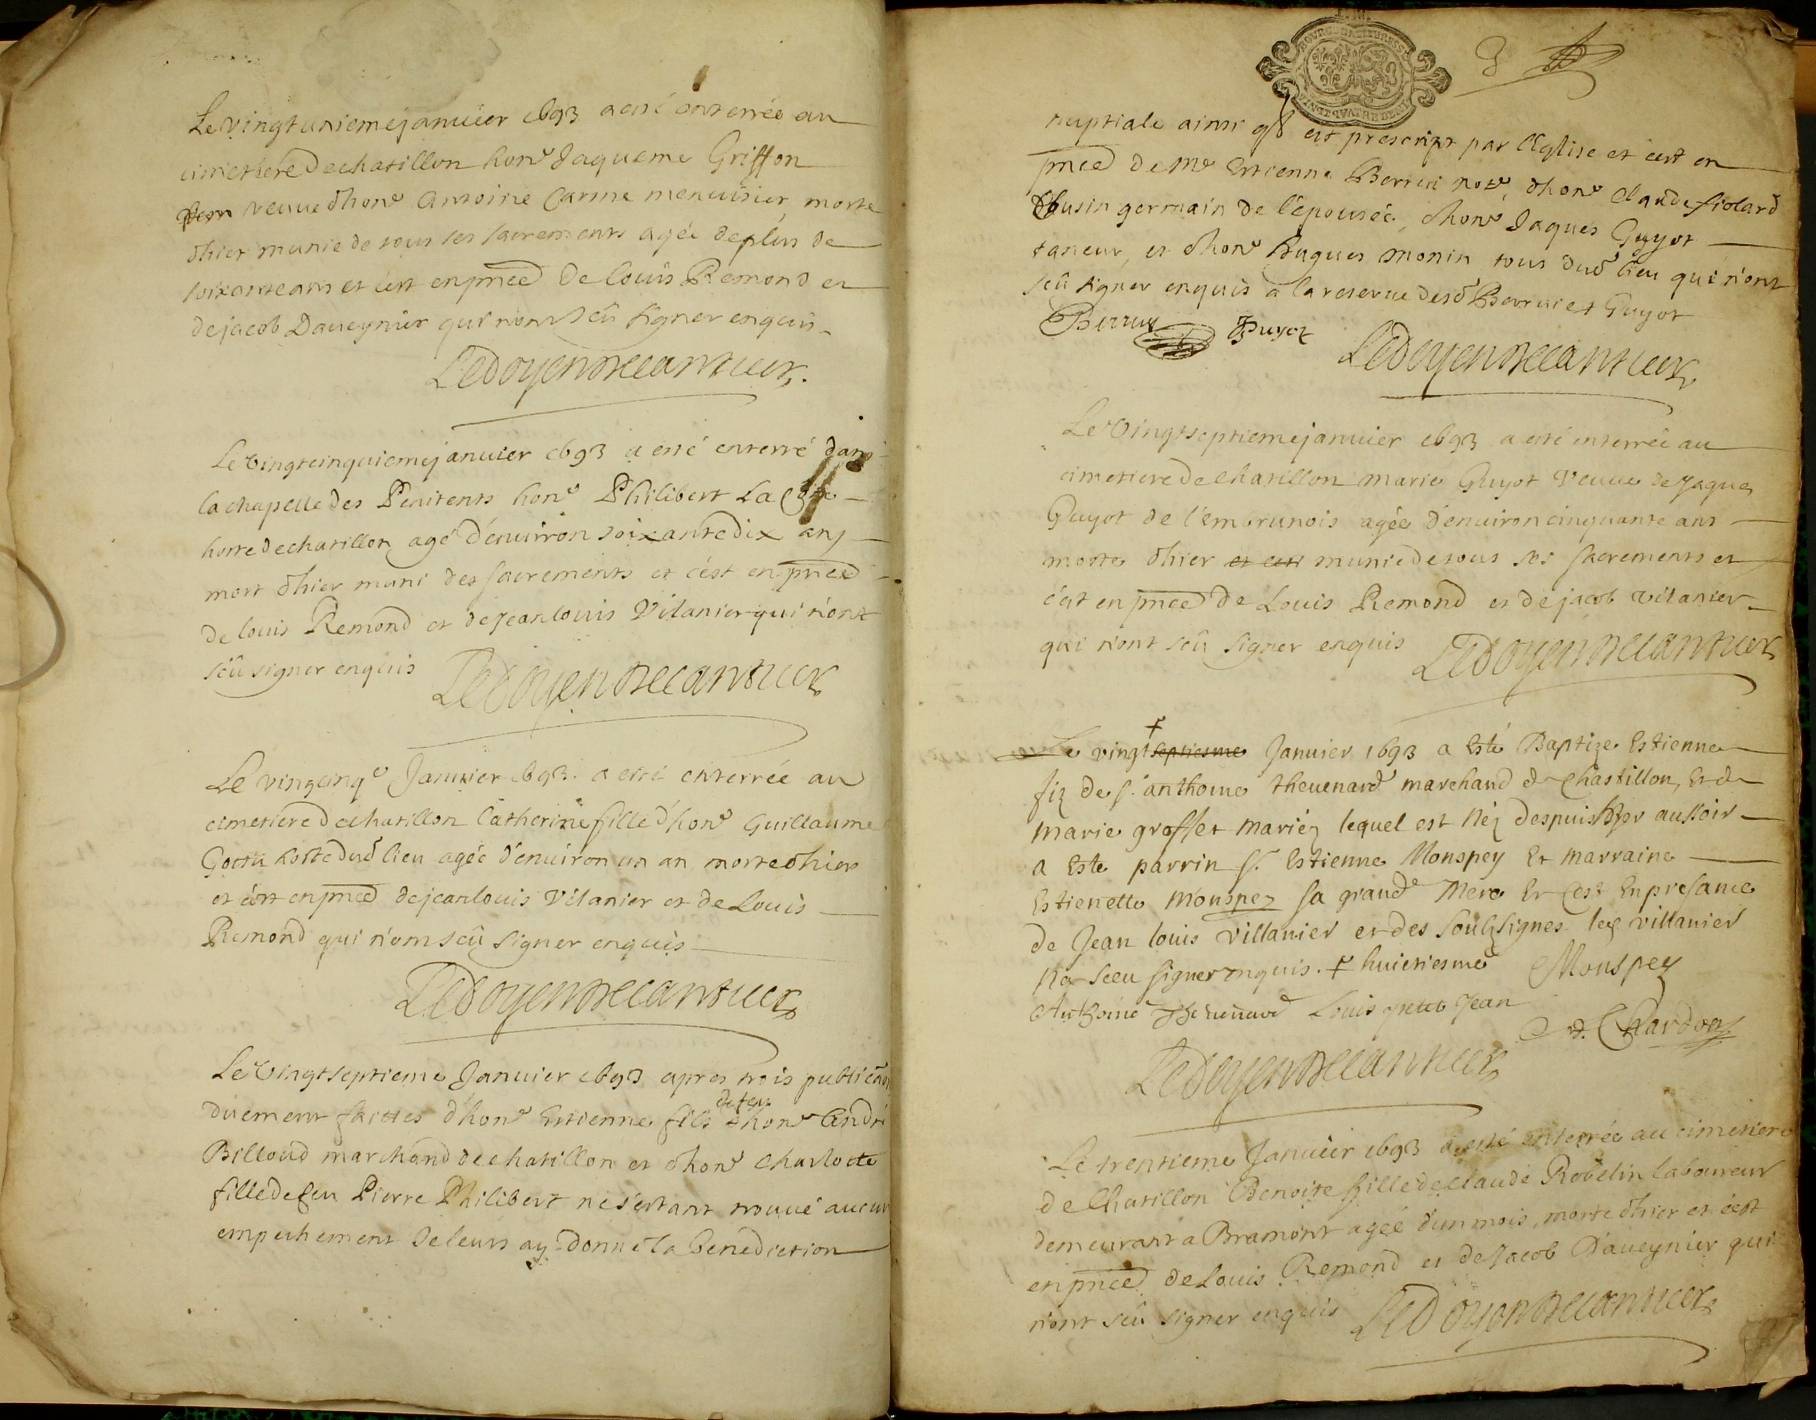 Le vingtuniemejanvier 1693 a esté enterrée au
cimetiere de chatillon hon^e Jaqueme Griffon
veuve d'hon^e Antoine Carme menuisier, morte
d'hier munie de tous les sacrements agée de plus de
soixante ans et c'est en pnce de Louis Remond et
de jacob Daveynier qui n'ont seû signer enquis
Le doyen
Le vingtcinquiemejanvier 1693 a esté enterré dans
la chapelle des Penitents hon^e Philibert La
horte de chatillon agé d'environ soixante dix ans
mort d'hier muni des sacrements et c'est en pnce
de Louis Remond et de jean louis Vilanier qui n'ont
seû signer enquis Le doyen
Le vingcinq^e Janvier 1693. a esté enterrée au
cimetiere de chatillon Catherine fille d'hon^e Guillaume
hoste dud lieu agée d'environ un an morte d'hier
et c'est en pnce de jean louis Vilanier et de Louis
Remond qui n'ont seû signer enquis
Le doyen
Le vingtseptieme Janvier 1693 apres trois
duement faittes d'hon^e Estienne fils de feu d'hon^e André
Billoud marchand de chatillon et d'hon^e Charlotte
fille de feu Pierre Philibert ne s'estant trouvé aucun
empechement je leurs ay donné la bénédiction
3
nuptiale ainsi qu'il est prescript par l'Eglise et c'est en
pnce de M^e Estienne Berrui not^e d'hon^e Claude fiolard
Cousin germain de l'épousée, d'hon^e Jaques Guyot
taneur, et d'hon^e Hugues Monin tous dud lieu qui n'ont
seû signer enquis a la reserve desd Berrui et Guyot
Berruy Guyot Le doyen
Le Vingtseptiemejanvier 1693 a esté enterrée au
cimetiere de chatillon Marie Guyot veuve de Jaques
Guyot de l'embrunois agée d'environ cinquante ans
morte d'hier et c'est munie de tous ses sacrements et
c'est en pnce de Louis Remond et de jacob vilanier
qui n'ont seû signer enquis Le doyen
Le vingt septiesme Janvier 1693 a Esté Baptize Estienne
fiz de s^r. anthoine thevenard marchand de Chastillon, Et de
Marie grosset mariéz lequel est Néz despuis hyer au soir
a Este parrin S^r. Estienne Monspey Et marraine
Estienette Monspey sa grand^e Mere Et Cest En presance
de Jean louis villanier et des soubsignes led villanier
Na sceu signer enquis. ✝ huictiesme Monspey
Anthoine Thevenard Louis petit Jean
Chardon
Le doyen
Le trentieme Janvier 1693 a esté enterrée au cimetiere
de Chatillon Benoite fille de claude Robelin laboureur
demeurant a Bramont agée d'un mois, morte d'hier et c'est
en pnce de Louis Remond et de Jacob D'aveynier qui
n'ont seû signer enquis Le doyen